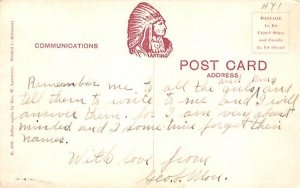 A41
POSTAGE
1c. for
United States
and Canada
2c. for abroad
COMMUNICATIONS
POST CARD
ADDRESS
Remember me to all the girls and
tell them to write to me and I will
answer them for I am very absent
minded and I sometime forget their
names.
With love from